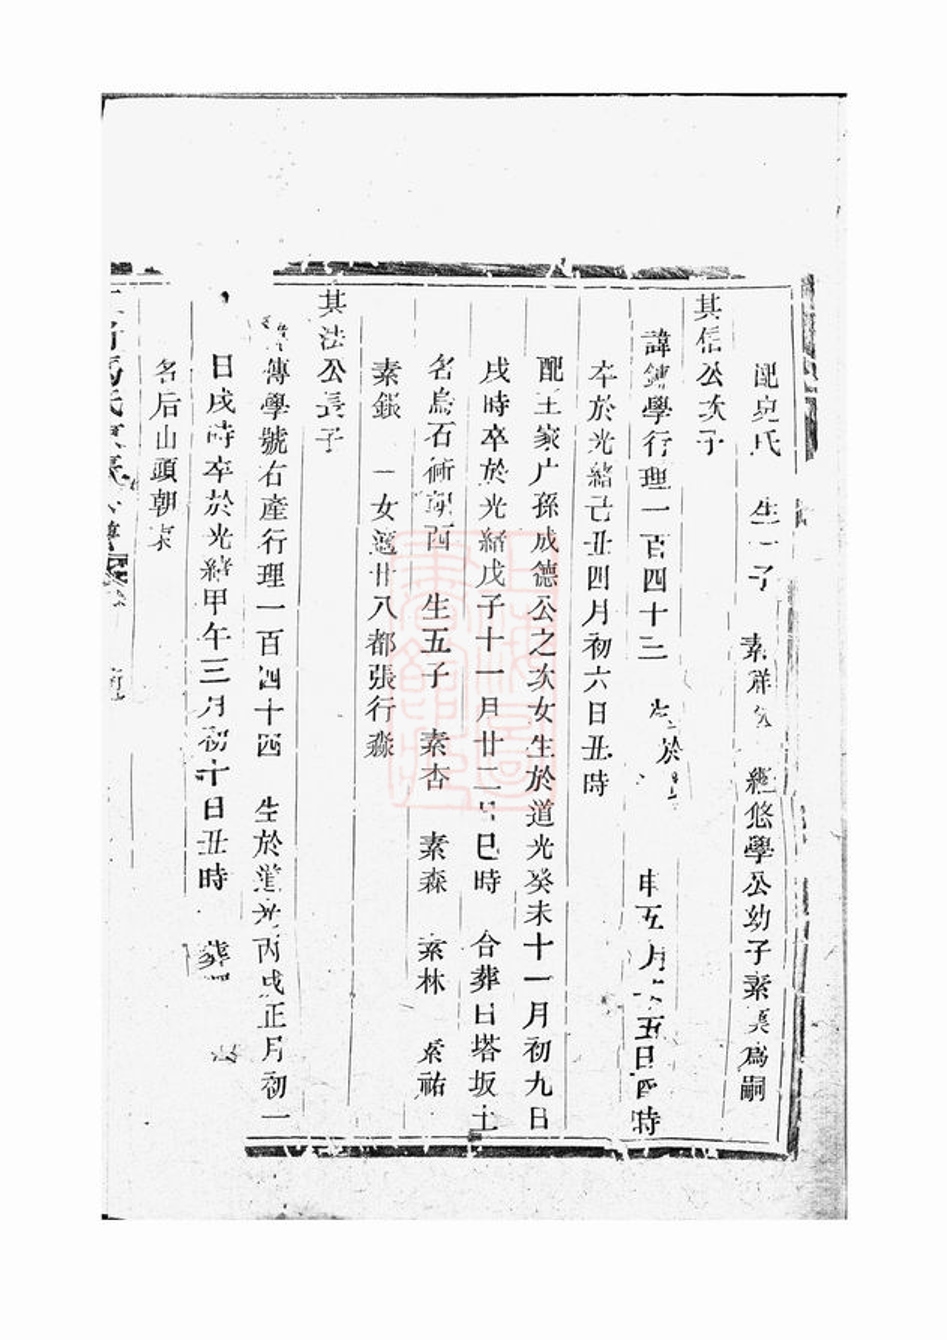 配 氏 生一子 素祥 繼悠學公幼子素 爲嗣
其信公次子
諱 學行理一百四十三 生於 申五月 五日酉時
卒於光緒己丑四月初六日丑時
配王家户孫成德公之次女生於道光癸未十一月初九日
戌時卒於光緒戊子十一月廿二日巳時 合葬曰塔坂土
名烏石 朝西 生五子 素杏 素森 素林 素祐
素銀 一女適廿八都張行淼
其法公長子
傳學號右產行理一百四十四 生於道光丙戌正月初一
日戌時卒於光緒甲午三月初十日丑時 葬
名后山頭朝東